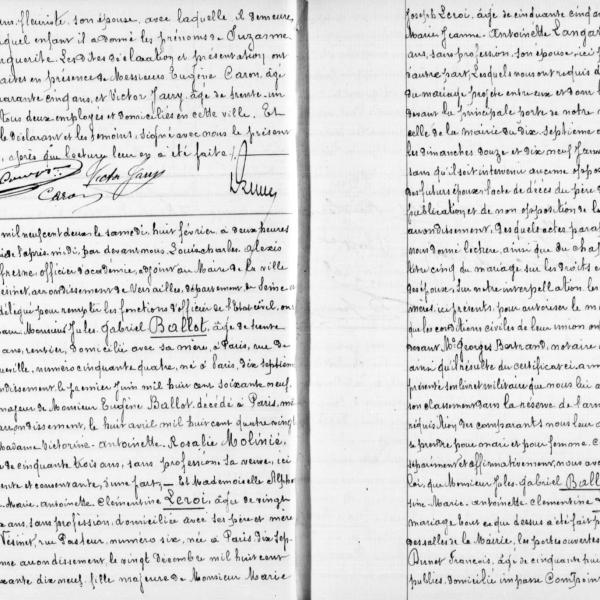 fleuriste, son épouse, avec laquelle il demeure,
quel enfant il a donné les prénoms de Suzanne
guerite. Lesdites déclaration et présentation ont
faites en présence de Messieurs Eugène Caron, âgé
quarante cinq ans, et Victor Jary, âgé de trente un
tous deux employés et domiciliés en cette ville. Et
le déclarant et les témoins, signé avec nous le présent
après que lecture leur en a été faite /.
Caron Victor Jary
mil neuf cent deux le samedi huit février, à deux heures
de l'après midi, par devant nous Louis Charles Alexis
fresne, officier d'académie, adjoint au Maire de la ville
ésinet, arrondissement de Versailles, département de Seine &
délégué pour remplir les fonctions d'officier de l'Etat civil, ont
Monsieur Jules Gabriel Ballot, âgé de trente
ans, rentier, domicilié avec sa mère, à Paris, rue de
ville, numéro cinquante quatre, né à Paris, dix septième
ondissement, le premier juin mil huit cent soixante neuf,
majeur de Monsieur Eugène Ballot, décédé à Paris, mê
arrondissement, le huit avril mil huit cent quatre vingt
Madame Victorine Antoinette Rosalie Molinié,
de cinquante trois ans, sans profession, sa veuve, ici
ente et consentante, d'une part, Et Mademoiselle Alpho
Marie Antoinette Clémentine Leroi, âgée de vingt
ans, sans profession, domiciliée avec ses père et mère
Vésinet, rue Pasteur, numéro six, née à Paris, dix sep
me arrondissement, le vingt décembre mil huit cent
xante dix neuf, fille majeure de Monsieur Marie
Joseph Leroi, âgé de cinquante cinq an
Marie Jeanne Antoinette Langar
ans, sans profession, son épouse, ici
d'autre part, Lesquels nous ont requis d
du mariage projeté entre eux et dont l
devant la principale porte de notre
celle de la mairie du dix septième a
les dimanches douze et dix neuf Janv
sans qu'il soit intervenu aucune oppos
des futurs époux, l'acte de décès du père d
publication et de non opposition de la
arrondissement, desquels actes, para
nous donné lecture, ainsi que du chap
titre cinq du mariage sur les droits e
des époux, Sur notre interpellation, les
mères, ici présents, pour autoriser le ma
que les conditions civiles de leur union ont
devant Me Georges Bertrand, notaire
ainsi qu'il résulte du certificat ci-ann
présenté son livret militaire que nous lui a
son classement dans la réserve de l'arm
réquisition des comparants nous leur a
se prendre pour mari et pour femme, c
séparément et affirmativement, nous avo
loi, que Monsieur Jules Gabriel Ball
sine Marie Antoinette Clémentine
mariage. Tout ce que dessus a été fait p
des salles de la Mairie, les portes ouvertes
François, âgé de cinquante huit
publics, domicilié impasse Compoint